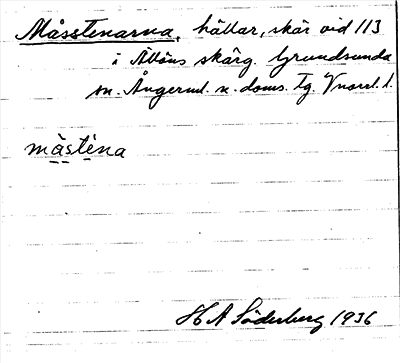 Måsstenarna, hällar, skär vid 113
i skärg. Grundsunda
sn. Ångerml. n. doms. tg. Vnorrl. l.
màstèna
H A Söderberg 1936